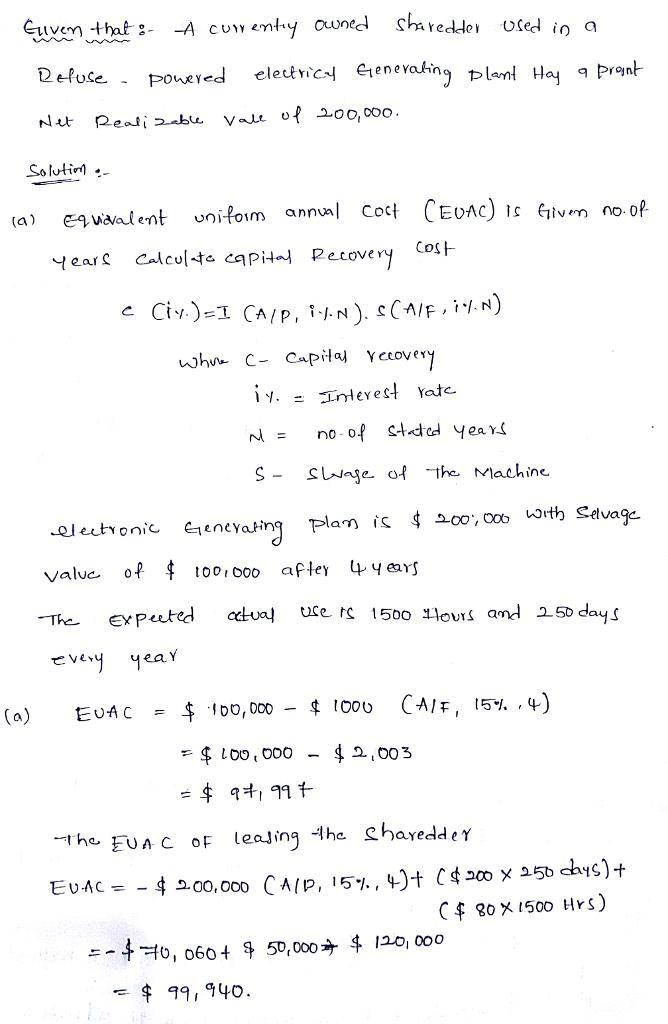 Given that :- A currently owned sharedder used in a
Refuse - powered electrical Generating plant Hay a Prernt
Net Realizable Vale of 200,000.
Solution :-
(a) Equivalent uniform annual Cost (EUAC) is Given no.of
years Calculate capital Recovery Cost
c (i%.)=I (A/P, i%.N). S(A/F, i%.N)
Where C- Capital recovery
i%. = Interest rate
N = no-of Stated years
S - Slvage of The Machine
electronic Generating plan is $ 200,000 with Selvage
value of $ 100,000 after 4 years
The Expected actual use is 1500 Hours and 250 days
every year
(a) EUAC = $ 100,000 - $ 1000 (A/F, 15%, 4)
= $ 100,000 - $ 2,003
= $ 97,997
The EUAC OF leasing the Sharedder
EUAC = - $ 200,000 (A/P, 15%, 4)+ ($ 200 X 250 days)+
($ 80 X 1500 Hrs)
= - $ 70,060 + $ 50,000 + $ 120,000
= $ 99,940.